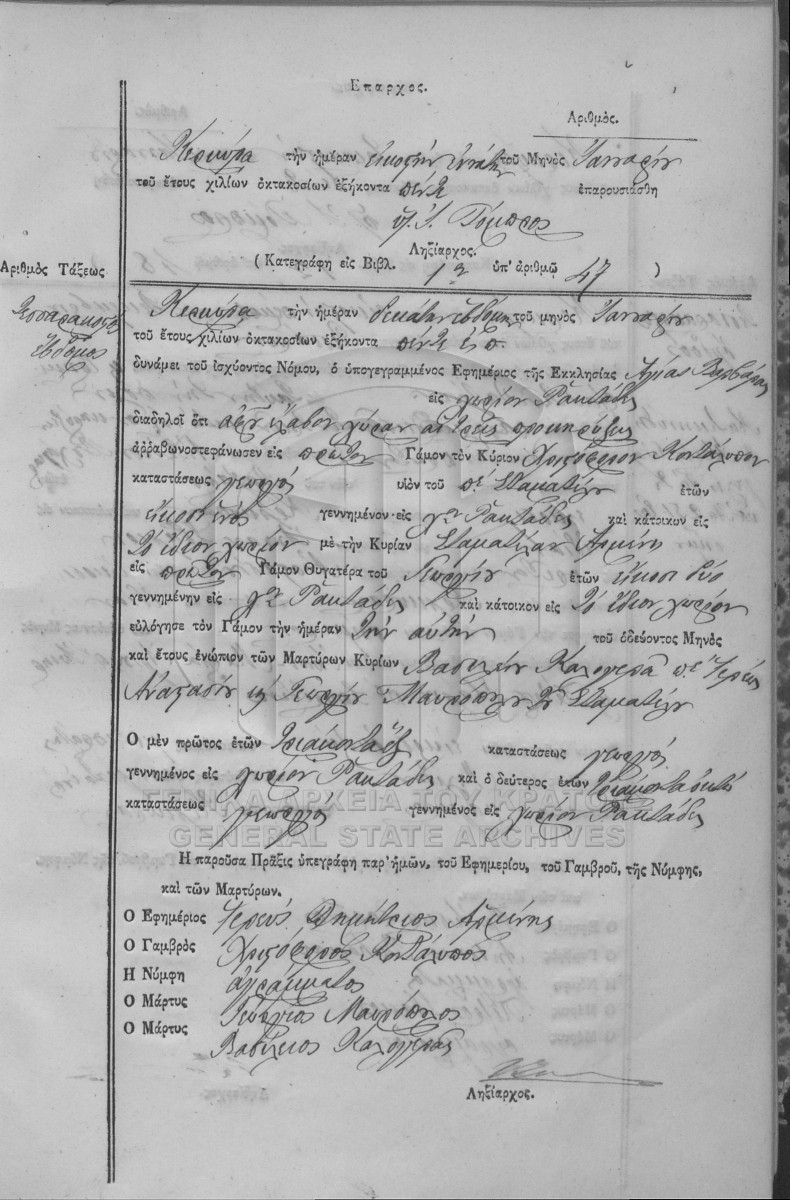 Επαρχος.
Αριθμὸς.
Κερκύρα τὴν ἡμέραν εἰκοστὴν ἐνάτην τοῦ Μηνὸς Ἰανναρίου
τοῦ ἔτους χιλίων ὀκτακοσίων ἑξήκοντα πέντε ἐπαρουσιάσθη
Ληξίαρχος.
( Κατεγράφη εἰς Βιβλ. 1 ὑπ' ἀριθμῷ 47 )
Αριθμὸς Τάξεως
Τεσσαρακοστὸς
ἕβδομος
Κερκύρα τὴν ἡμέραν δεκάτην ἑβδόμην τοῦ μηνὸς Ἰανναρίου
τοῦ ἔτους χιλίων ὀκτακοσίων ἑξήκοντα πέντε ἐ. π.
δυνάμει τοῦ ἰσχύοντος Νόμου, ὁ ὑπογεγραμμένος Ἐφημέριος τῆς Ἐκκλησίας Ἁγίας Βαρβάρας
εἰς χωρίον Ρακτάδες
διαδηλοῖ ὅτι ἀφοῦ ἔλαβον χώραν αἱ τρεῖς προκηρύξεις
ἀῤῥαβωνοστεφάνωσεν εἰς πρῶτον Γάμον τὸν Κύριον Χριστόφορον Κονταλύπον
καταστάσεως γεωργός υἱὸν τοῦ πέ Σταματίου ἐτῶν
εἴκοσι ἑνός γεννημένον εἰς χον Ρακτάδες καὶ κάτοικον εἰς
τὸ ἴδιον χωρίον μὲ τὴν Κυρίαν Σταματέλαν Ἀρμένη
εἰς πρῶτον Γάμον Θυγατέρα τοῦ Γεωργίου ἐτῶν εἴκοσι δύο
γεννημένην εἰς χον Ρακτάδες καὶ κάτοικον εἰς τὸ ἴδιον χωρίον
εὐλόγησε τὸν Γάμον τὴν ἡμέραν τὴν αὐτήν τοῦ ὁδεύοντος Μηνὸς
καὶ ἔτους ἐνώπιον τῶν Μαρτύρων Κυρίων Βασιλείου Καλογερᾶ πέ Ἱερέως
Ἀναστασίου καὶ Γεωργίου Μαυρόπουλου τοῦ Σταματίου
Ο μὲν πρῶτος ἐτῶν τριάκοντα ἕξ καταστάσεως γεωργός
γεννημένος εἰς χωρίον Ρακτάδες καὶ ὁ δεύτερος ἐτῶν τριάκοντα ὀκτώ
καταστάσεως γεωργός γεννημένος εἰς χωρίον Ρακτάδες
ΓΕΝΙΚΑ ΑΡΧΕΙΑ ΤΟΥ ΚΡΑΤΟΥΣ
GENERAL STATE ARCHIVES
Η παροῦσα Πρᾶξις ὑπεγράφη παρ' ἡμῶν, τοῦ Ἐφημερίου, τοῦ Γαμβροῦ, τῆς Νύμφης,
καὶ τῶν Μαρτύρων.
Ο Ἐφημέριος Ἱερεύς Δημήτριος Ἀρμένης
Ο Γαμβρὸς Χριστόφορος Κονταλύπος
Η Νύμφη ἀγράμματος
Ο Μάρτυς Γεώργιος Μαυρόπουλος
Ο Μάρτυς Βασίλειος Καλογερᾶς
Ληξίαρχος.